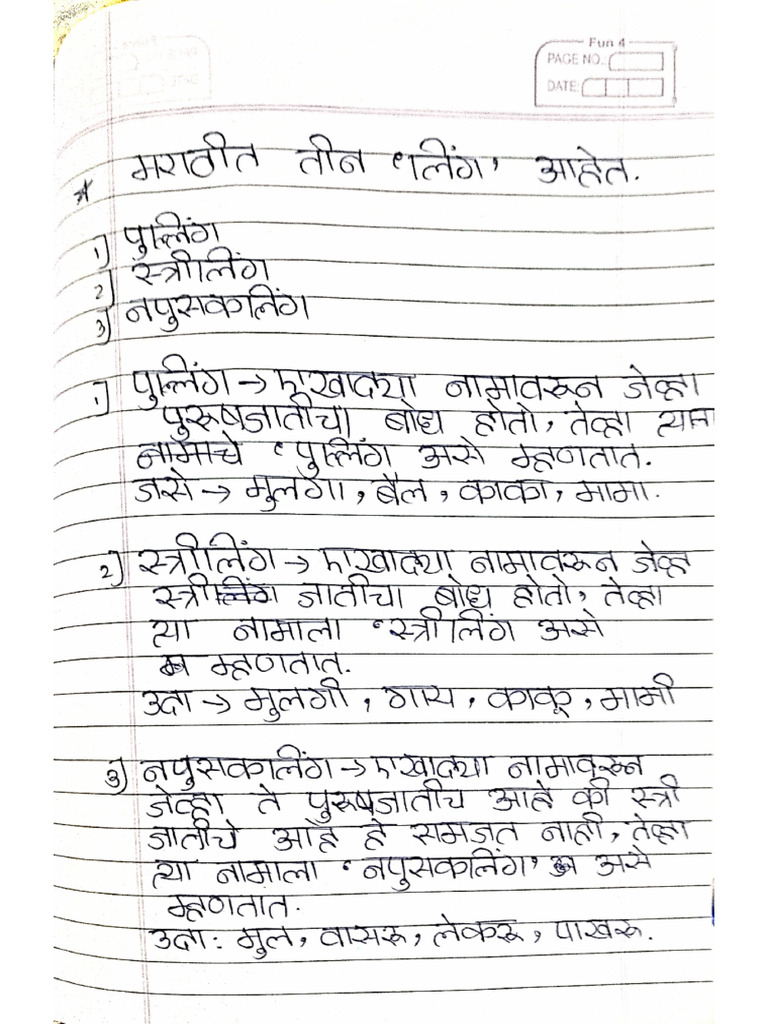 Fun 4
PAGE NO.
DATE:
* मराठीत तीन 'लिंग' आहेत.
1) पुल्लिंग
2) स्त्रीलिंग
3) नपुसकलिंग
1) पुल्लिंग → एखाद्या नामावरून जेव्हा
पुरूषजातीचा बोध होतो, तेव्हा त्या
नामाचे 'पुल्लिंग असे म्हणतात.
जसे → मुलगा, बैल, काका, मामा.
2) स्त्रीलिंग → एखाद्या नामावरून जेव्हा
स्त्रीलिंग जातीचा बोध होतो, तेव्हा
त्या नामाला 'स्त्रीलिंग असे
म्हणतात.
उदा → मुलगी, गाय, काकू, मामी
3) नपुसकलिंग → एखाद्या नामावरून
जेव्हा ते पुरूषजातीच आहे की स्त्री
जातीचे आहे हे समजत नाही, तेव्हा
त्या नामाला 'नपुसकलिंग' असे
म्हणतात.
उदा: मुल, वासरू, लेकरू, पाखरू.